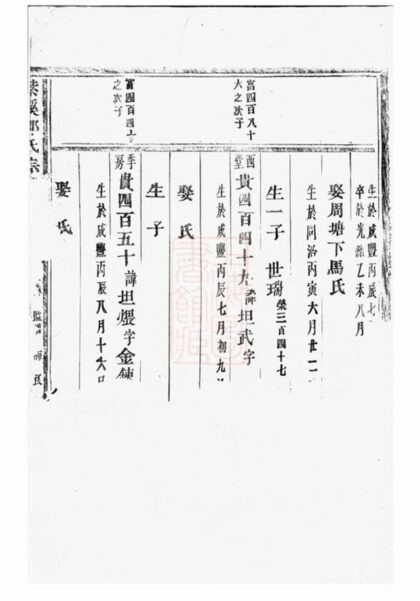 富四百八十
六之次子
富四百四十
之次子
生於咸豐丙辰七
卒於光緒乙未八月
娶周塘下馬氏
生於同治丙寅六月廿一
生一子 世瑞 榮三百四十七
酉堂 貴四百四十九 諱坦武字
生於咸豐丙辰七月初九
娶 氏
生 子
季房 貴四百五十 諱坦煖字金鍊
生於咸豐丙辰八月十六
娶 氏
紫溪邵氏宗